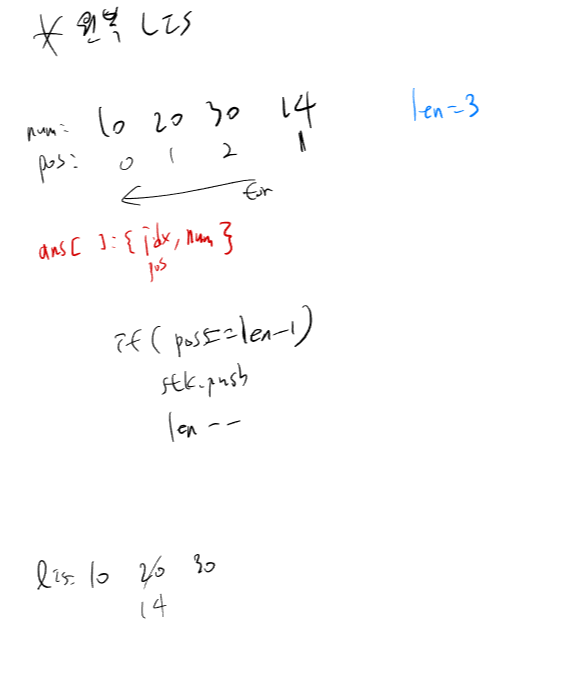 * 완벽 LIS
num: 10 20 30 14
len=3
pos: 0 1 2 1
for
ans[ ]: { idx, num }
pos
if( pos==len-1)
stk.push
len --
lis: 10 20 30
14